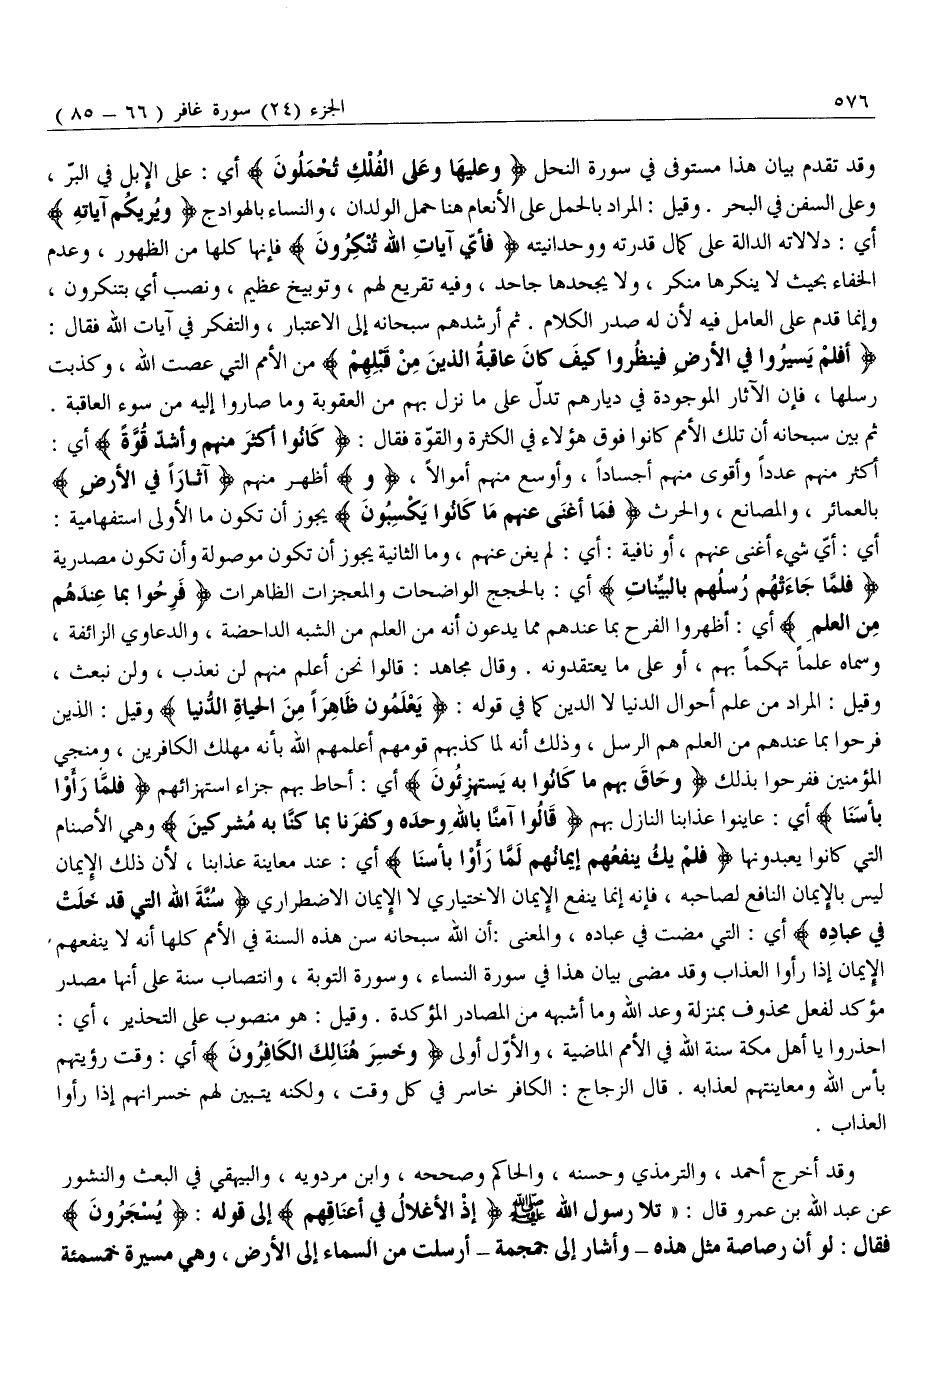 ٥٧٦
الجزء (٢٤) سورة غافر ( ٦٦ – ٨٥ )
وقد تقدم بيان هذا مستوفى في سورة النحل ﴿ وعليهَا وعَلى الفُلْكِ تُحْمَلُونَ ﴾ أي : على الإبل في البرّ ،
وعلى السفن في البحر . وقيل : المراد بالحمل على الأنعام هنا حمل الولدان ، والنساء بالهوادج ﴿ ويُريكُم آياتهِ ﴾
أي : دلالاته الدالة على كمال قدرته ووحدانيته ﴿ فأيّ آياتِ الله تُنْكِرُونَ ﴾ فإنها كلها من الظهور ، وعدم
الخفاء بحيث لا ينكرها منكر ، ولا يجحدها جاحد ، وفيه تقريع لهم ، وتوبيخ عظيم ، ونصب أي بتنكرون ،
وإنما قدم على العامل فيه لأن له صدر الكلام . ثم أرشدهم سبحانه إلى الاعتبار ، والتفكر في آيات الله فقال :
﴿ أفلمْ يَسيرُوا في الأرضِ فينظُروا كيفَ كانَ عاقبةُ الذينَ مِنْ قَبْلِهِمْ ﴾ من الأمم التي عصت الله ، وكذبت
رسلها ، فإن الآثار الموجودة في ديارهم تدلّ على ما نزل بهم من العقوبة وما صاروا إليه من سوء العاقبة .
ثم بين سبحانه أن تلك الأمم كانوا فوق هؤلاء في الكثرة والقوّة فقال : ﴿ كَانُوا أكثرَ منهم وأشدّ قُوَّةً ﴾ أي :
أكثر منهم عدداً وأقوى منهم أجساداً ، وأوسع منهم أموالاً ، ﴿ و ﴾ أظهر منهم ﴿ آثَارَاً في الأرضِ ﴾
بالعمائر ، والمصانع ، والحرث ﴿ فمَا أغنَى عنهم مَا كَانُوا يَكْسِبُونَ ﴾ يجوز أن تكون ما الأولى استفهامية :
أي : أيّ شيء أغنى عنهم ، أو نافية : أي : لم يغن عنهم ، وما الثانية يجوز أن تكون موصولة وأن تكون مصدرية
﴿ فلمَّا جَاءَتْهُم رُسلُهم بالبيِّناتِ ﴾ أي : بالحجج الواضحات والمعجزات الظاهرات ﴿ فَرِحُوا بما عِندَهُم
مِن العلمِ ﴾ أي : أظهروا الفرح بما عندهم مما يدعون أنه من العلم من الشبه الداحضة ، والدعاوي الزائفة ،
وسماه علماً تهكماً بهم ، أو على ما يعتقدونه . وقال مجاهد : قالوا نحن أعلم منهم لن نعذب ، ولن نبعث ،
وقيل : المراد من علم أحوال الدنيا لا الدين كما في قوله : ﴿ يَعْلَمُون ظَاهِرَاً مِنَ الحياةِ الدُّنيا ﴾ وقيل : الذين
فرحوا بما عندهم من العلم هم الرسل ، وذلك أنه لما كذبهم قومهم أعلمهم الله بأنه مهلك الكافرين ، ومنجي
المؤمنين ففرحوا بذلك ﴿ وحَاقَ بهم ما كَانُوا به يَستهزِئُونَ ﴾ أي : أحاط بهم جزاء استهزائهم ﴿ فلمَّا رَأَوْا
بأسَنَا ﴾ أي : عاينوا عذابنا النازل بهم ﴿ قَالُوا آمنَّا باللهِ وحدَه وكفَرنا بما كنَّا به مُشركينَ ﴾ وهي الأصنام
التي كانوا يعبدونها ﴿ فلمْ يكُ ينفعُهم إيمَانُهم لَمَّا رَأَوْا بأسنَا ﴾ أي : عند معاينة عذابنا ، لأن ذلك الإيمان
ليس بالإيمان النافع لصاحبه ، فإنه إنما ينفع الإيمان الاختياري لا الإيمان الاضطراري ﴿ سُنَّةَ الله التي قد خلَتْ
في عبادِه ﴾ أي : التي مضت في عباده ، والمعنى :أن الله سبحانه سن هذه السنة في الأمم كلها أنه لا ينفعهم
الإيمان إذا رأوا العذاب وقد مضى بيان هذا في سورة النساء ، وسورة التوبة ، وانتصاب سنة على أنها مصدر
مؤكد لفعل محذوف بمنزلة وعد الله وما أشبهه من المصادر المؤكدة . وقيل : هو منصوب على التحذير ، أي :
احذروا يا أهل مكة سنة الله في الأمم الماضية ، والأوّل أولى ﴿ وخَسِرَ هُنَالِكَ الكَافِرُونَ ﴾ أي : وقت رؤيتهم
بأس الله ومعاينتهم لعذابه . قال الزجاج : الكافر خاسر في كل وقت ، ولكنه يتبين لهم خسرانهم إذا رأوا
العذاب .
وقد أخرج أحمد ، والترمذي وحسنه ، والحاكم وصححه ، وابن مردويه ، والبيهقي في البعث والنشور
عن عبد الله بن عمرو قال : « تلا رسول الله ﷺ ﴿ إذْ الأغلالُ في أعناقِهم ﴾ إلى قوله : ﴿ يُسْجَرُونَ ﴾
فقال : لو أن رصاصة مثل هذه – وأشار إلى جمجمة – أرسلت من السماء إلى الأرض ، وهي مسيرة خمسمئة